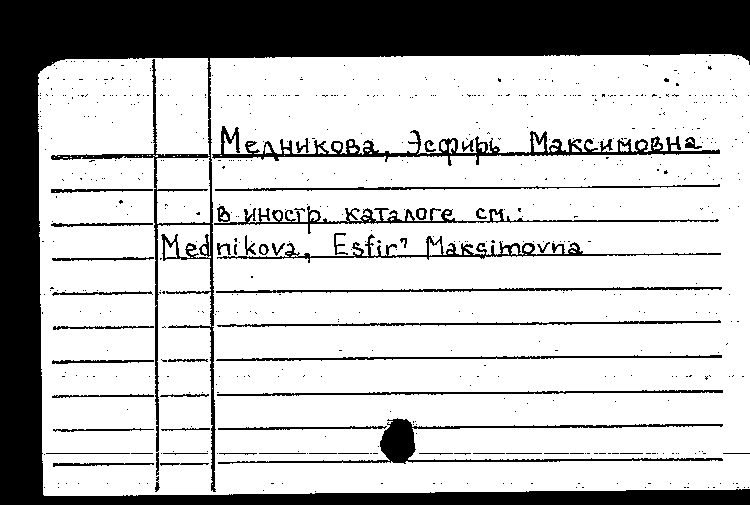 Медникова, Эсфирь Максимовна
в иностр. каталоге см.:
Mednikova, Esfir' Maksimovna